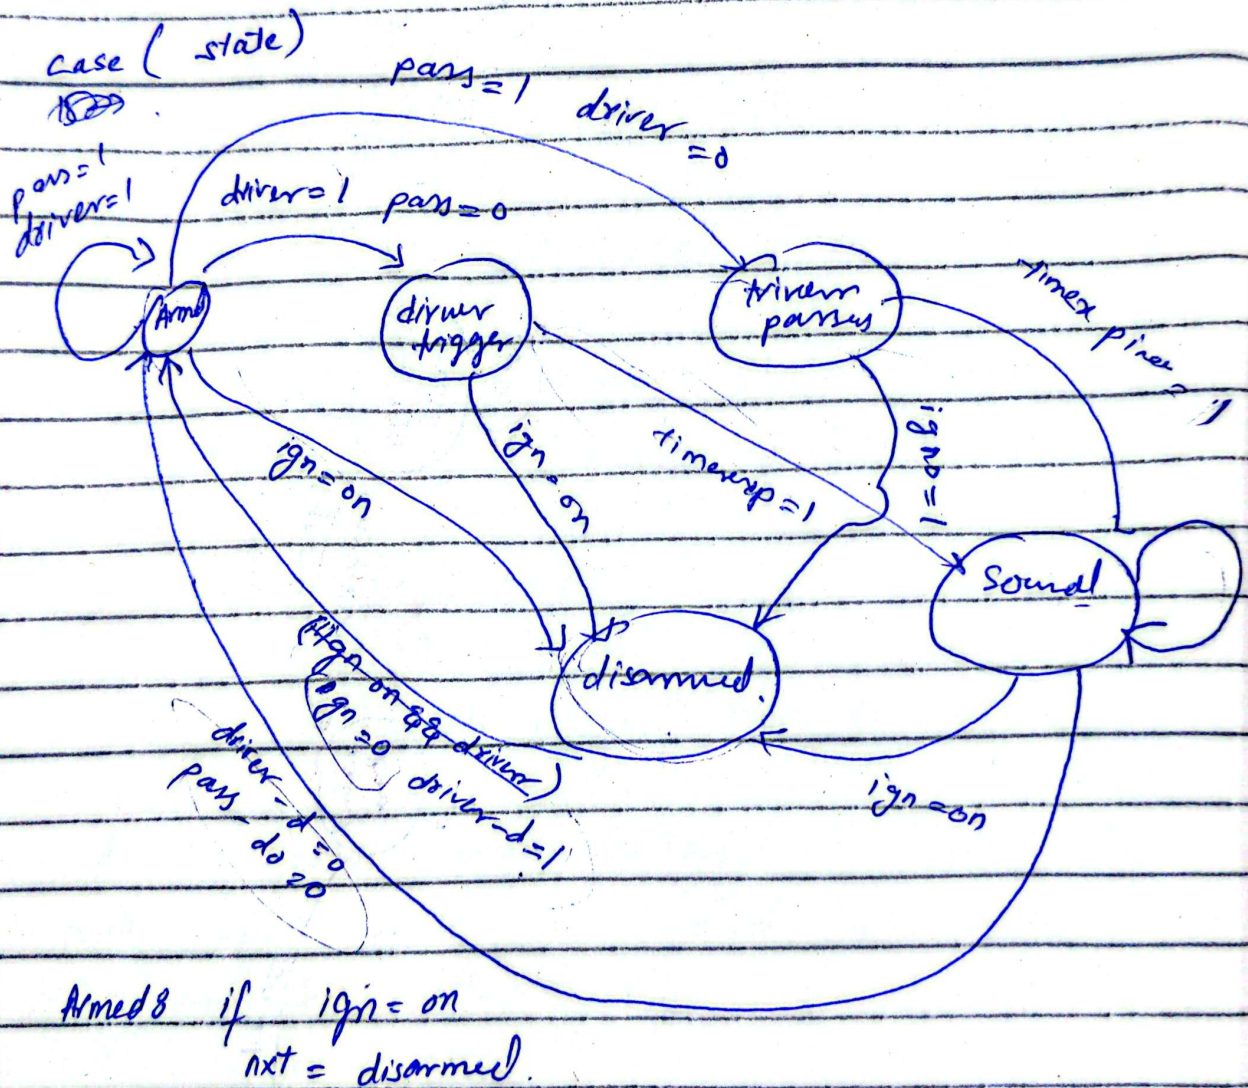 case ( state)
pass=1
driver
=0
pass=1
driver=1
driver=1
pass=0
Armed
trigger
passes
timex
ign=on
ign=on
timeexp=1
igno=1
sound
disarmed.
ign on && driver)
ign=0
driver-p=1
driver-d=0
pass-do=0
ign=on
Armed8 if ign= on
nxt = disarmed.